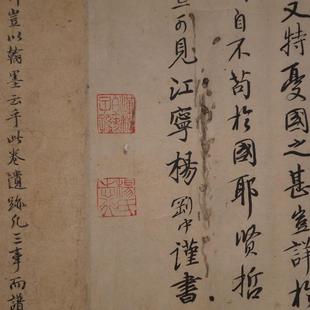 又特憂國之甚豈詳於
自不苟於國耶賢哲
可見江寧楊剛中謹書
豈以翰墨云乎此卷遺跡凡三事而譜